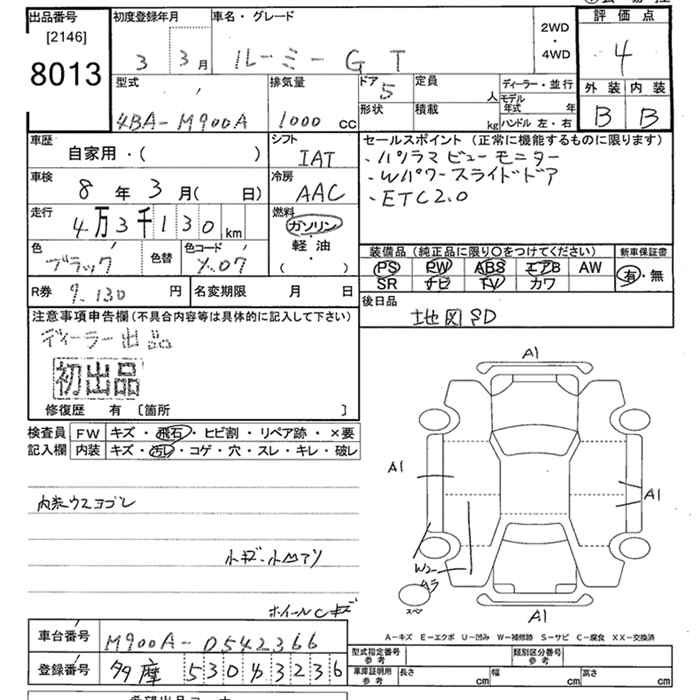 出品番号
[2146]
8013
初度登録年月
3 3月
車名・グレード
ルーミー GT
2WD
・
4WD
評価点
4
外装 内装
B B
型式
4BA-M900A
排気量
1000 CC
ドア
5
形状
定員
人
積載
kg
ディーラー・並行
モデル年式 年
ハンドル 左・右
車歴
自家用・( )
シフト
IAT
セールスポイント (正常に機能するものに限ります)
・パノラマビューモニター
・Wパワースライドドア
・ETC2.0
車検
8年3月( 日)
冷房
AAC
走行
4万3千130km
燃料
ガソリン・
軽油・
( )
色
ブラック
色替
色コード
X07
装備品 (純正品に限り○をつけてください)
PS PW ABS エアB AW
SR ナビ TV カワ
新車保証書
有・無
R券 9,130円
名変期限 月 日
後日品
地図SD
注意事項申告欄(不具合内容等は具体的に記入して下さい)
ディーラー出品
初出品
修復歴 有 [箇所 ]
検査員記入欄
FW キズ・飛石・ヒビ割・リペア跡・×要
内装 キズ・汚レ・コゲ・穴・スレ・キレ・破レ
内装ウスヨゴレ
小キズ・小凹アリ
ホイールCキズ
A1
A1
A1
W2
スペア
A1
A-キズ E-エクボ U-凹み W-補修跡 S-サビ C-腐食 XX-交換済
車台番号 M900A-0542366
登録番号 多摩 530 ち 3236
型式指定番号
参考
類別区分番号
参考
車庫証明用
参考
長さ cm
幅 cm
高さ cm